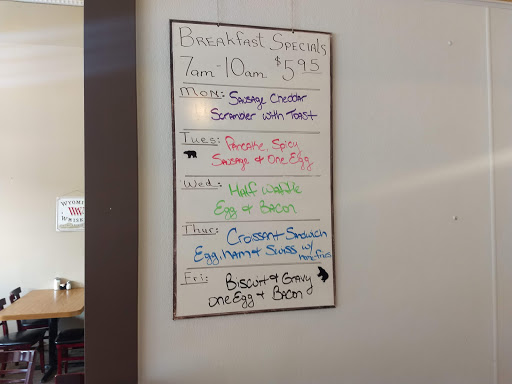 Breakfast Specials
7am-10am $5.95
Mon: Sausage Cheddar
Scrambler with Toast
Tues: Pancake, Spicy
Sausage & One Egg
Wed: Half Waffle
Egg & Bacon
Thur: Croissant Sandwich
Egg, Ham & Swiss w/
Fri: Biscuit & Gravy
One Egg & Bacon
WYOMING
WHISKEY